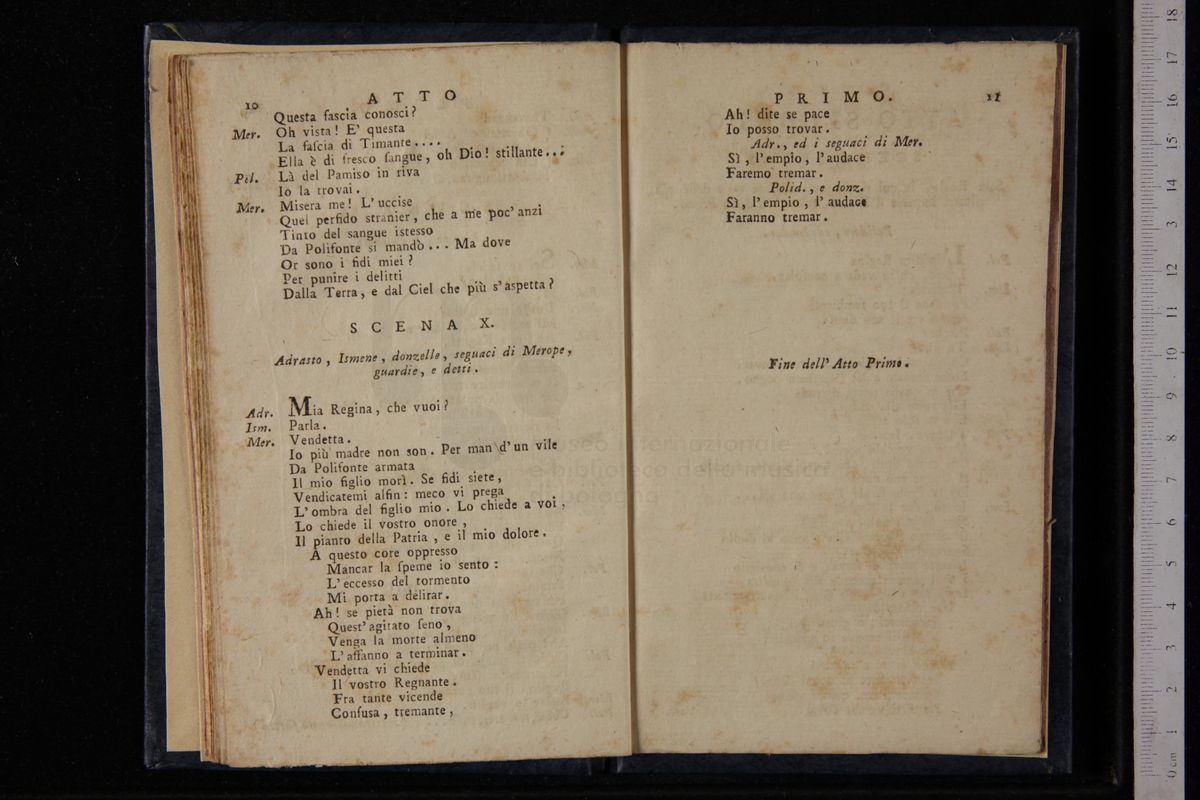 10
ATTO
Questa fascia conosci?
Mer. Oh vista! E' questa
La faſcia di Timante....
Ella è di freſco ſangue, oh Dio! stillante...
Pol. Là del Pamiso in riva
Io la trovai.
Mer. Misera me! L'uccise
Quel perfido stranier, che a me poc'anzi
Tinto del sangue istesso
Da Polifonte si mandò... Ma dove
Or sono i fidi miei?
Per punire i delitti
Dalla Terra, e dal Ciel che più s'aspetta?
SCENA X.
Adrasto, Ismene, donzelle, seguaci di Merope,
guardie, e detti.
Adr. Mia Regina, che vuoi?
Ism. Parla.
Mer. Vendetta.
Io più madre non son. Per man d'un vile
Da Polifonte armata
Il mio figlio morì. Se fidi siete,
Vendicatemi alfin: meco vi prega
L'ombra del figlio mio. Lo chiede a voi,
Lo chiede il vostro onore,
Il pianto della Patria, e il mio dolore.
A questo core oppresso
Mancar la ſpeme io sento:
L'eccesso del tormento
Mi porta a delirar.
Ah! se pietà non trova
Quest'agitato ſeno,
Venga la morte almeno
L'affanno a terminar.
Vendetta vi chiede
Il vostro Regnante.
Fra tante vicende
Confusa, tremante,
PRIMO.
11
Ah! dite se pace
Io posso trovar.
Adr., ed i seguaci di Mer.
Sì, l'empio, l'audace
Faremo tremar.
Polid., e donz.
Sì, l'empio, l'audace
Faranno tremar.
Fine dell'Atto Primo.
museo internazionale
e biblioteca della musica
bologna
0 cm 1 2 3 4 5 6 7 8 9 10 11 12 13 14 15 16 17 18